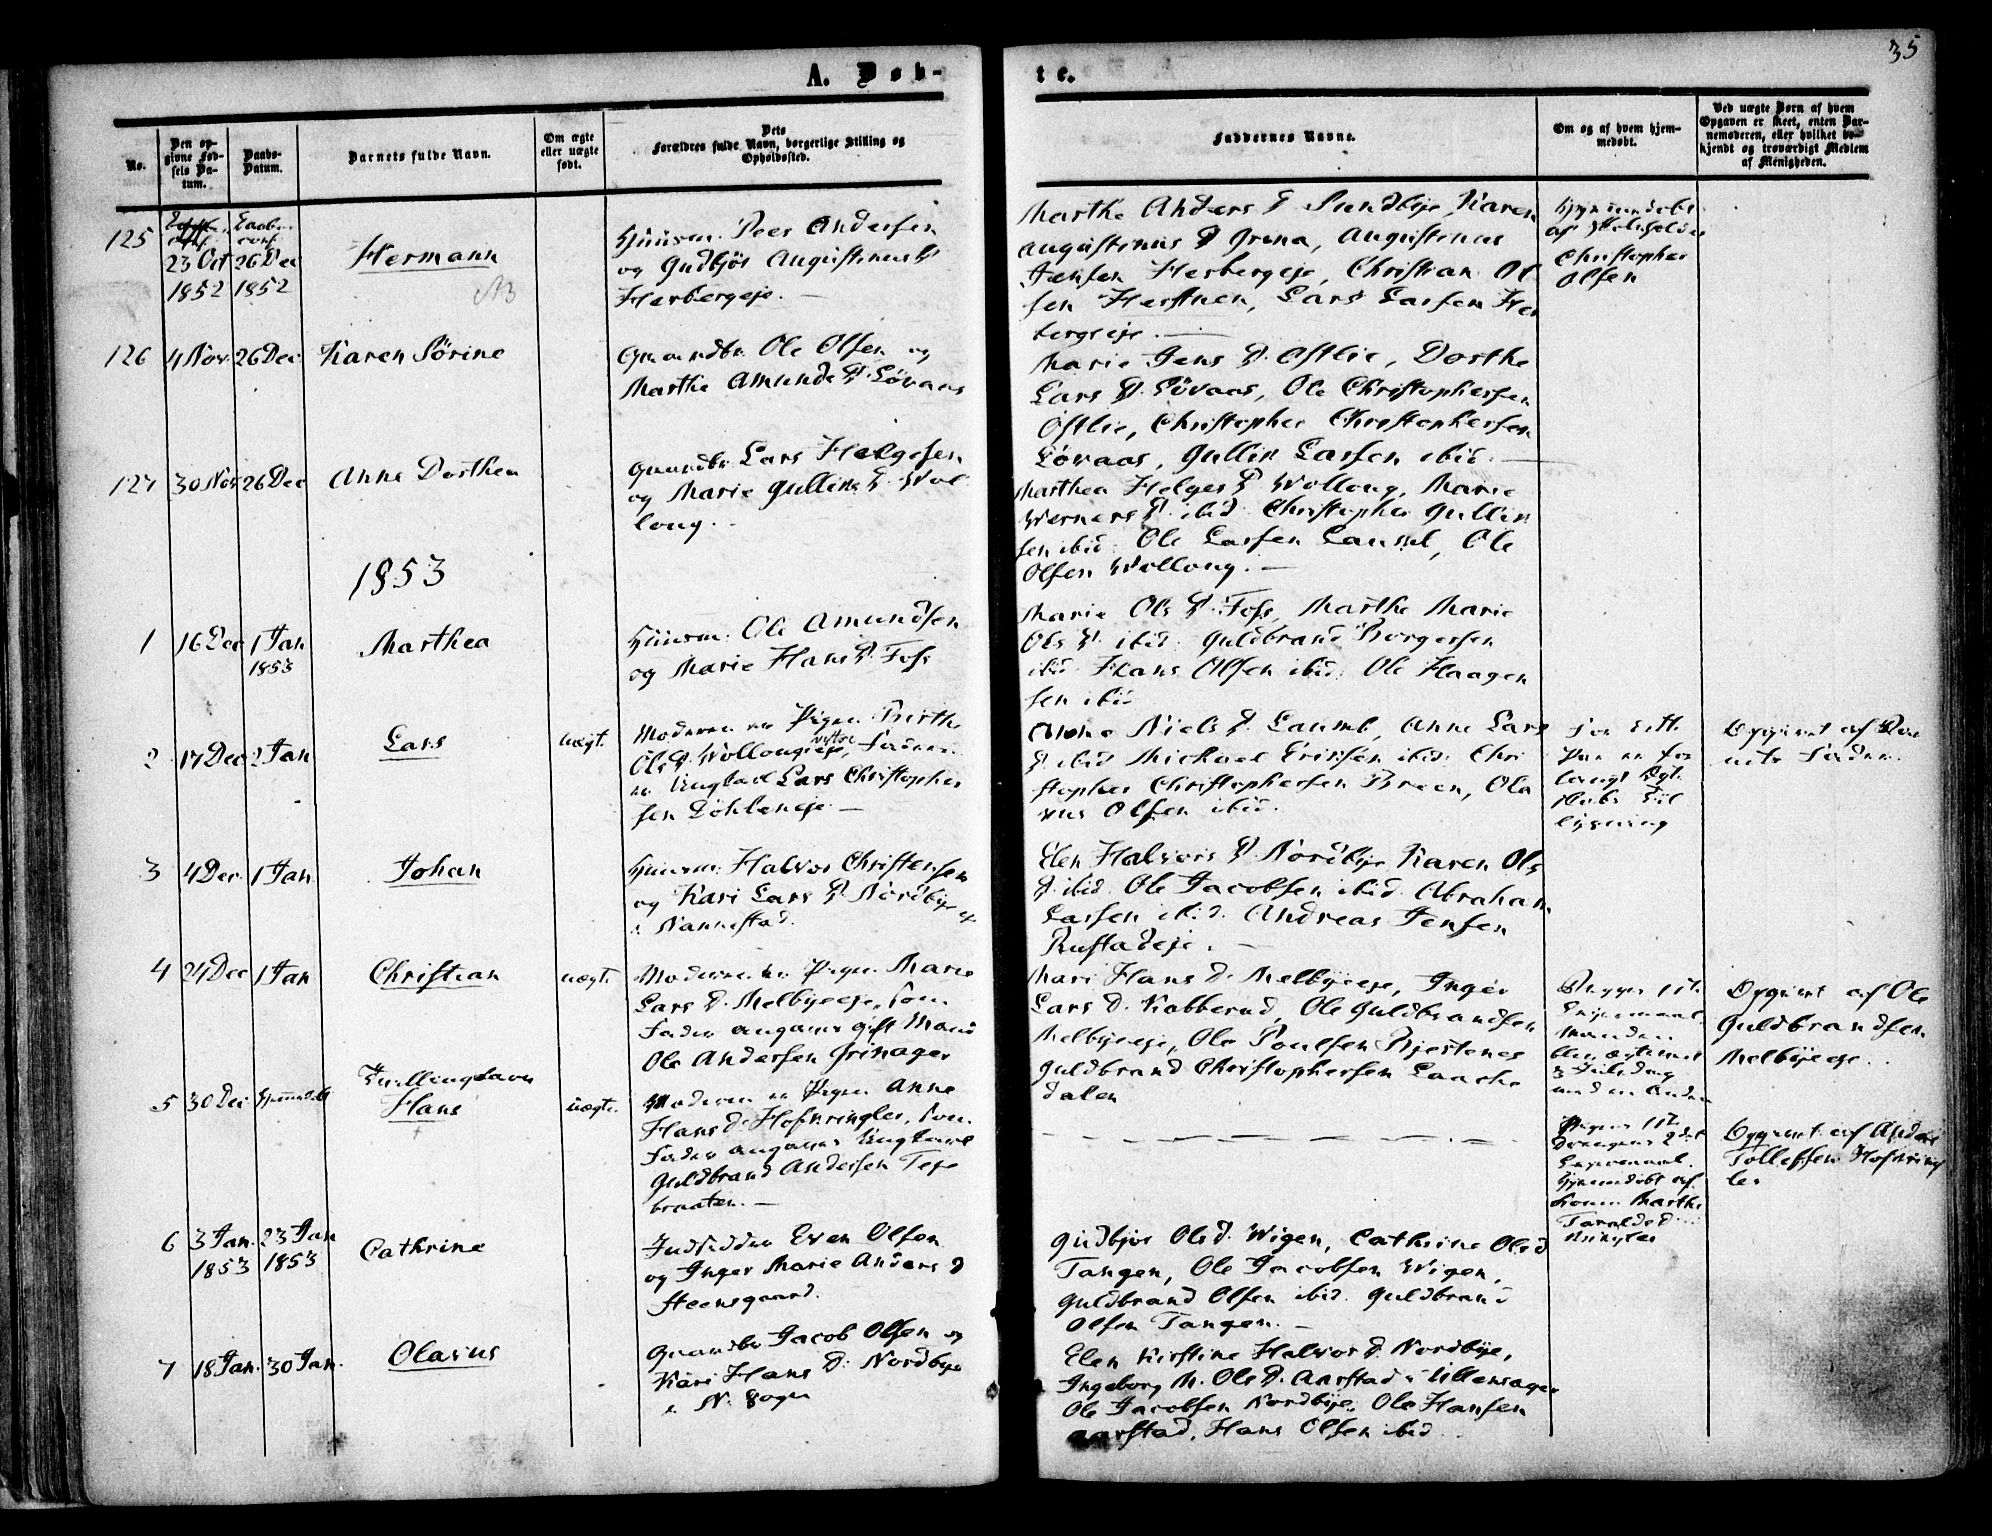 35
A. Døb-
te.
No.
Den op-
givne Fød-
sels Da-
tum.
Daabs-
Datum.
Barnets fulde Navn.
Om ægte
eller uægte
født.
Dets
Forældres fulde Navn, borgerlige Stilling og
Opholdssted.
Faddernes Navne.
Om og af hvem hjem-
medøbt.
Ved uægte Børn af hvem
Opgaven er skeet, enten Bar-
nemoderen, eller hvilket be-
kjendt og troværdigt Medlem
af Menigheden.
125
23 Oct
1852
26 Dec
1852
Hermann
Huusm. Peer Andersen
og Gudbjør Augustinus D
Herbergeje. —
Marthe Anders D Sundbye, Karen
Augustinus D Grena, Augustinus
Jensen Herbergeje, Christian Ol
sen Herstuen, Lars Larsen Her
bergeje. —
Hjemmedøbt
af Skoleholder
Christopher
Olsen
126
4 Nov.
26 Dec
Karen Sørine
Gaardbr. Ole Olsen og
Marthe Amunds D. Løvaas
Marie Jens D. Østlie, Dorthe
Lars D. Løvaas, Ole Christophersen
Østlie, Christopher Christophersen
Løvaas, Gullik Larsen ibid. —
127
30 Nov
26 Dec
Anne Dorthea
Gaardbr. Lars Helgesen
og Marie Gulliks D. Wol
long.
Marthea Helges D Wollong, Marie
Werners D. ibid. Christopher Gullik
sen ibid. Ole Larsen Laumb, Ole
Olsen Wollong. —
1853
1
16 Dec
1 Jan
1853
Marthea
Huusm. Ole Amundsen
og Marie Hans D. Foss
Marie Ols D. Foss, Marthe Marie
Ols D. ibid. Guldbrand Borgersen
ibid. Hans Olsen ibid. Ole Haagen
sen ibid
2
17 Dec
2 Jan
Lars
uægt.
Moderen er Pigen Birthe
Ols D. Wollongeje, Faderen
er Ungkarl Lars Christopher
sen Døhleneje. —
Anne Niels D. Laumb, Anne Lars
D. ibid. Michael Eriksen ibid. Chri
stopher Christophersen Breen, Ola
vus Olsen ibid.
For dette
Par er for
langt Ægte
skabs Til
lysning
Opgivet af Bar
nets Fader.
3
4 Dec
1 Jan
Johan
Huusm. Halvor Christensen
og Kari Lars D. Nordbye
i Nannestad.
Elen Halvors D. Nordbye Karen Ols
D. ibid. Ole Jacobsen ibid. Abraham
Larsen ibid. Andreas Jensen
Rustadeje. —
4
24 Dec
1 Jan
Christian
uægt.
Moderen er Pigen Marie
Lars D. Melbyeeje, som
Fader angaves gift Mand
Ole Andersen Grinager
Mari Hans D. Melbyeeje, Inger
Lars D. Kobberud, Ole Guldbrandsen
Melbyeeje, Ole Poulsen Bjertenes
Guldbrand Christophersen Laache
dalen
Begges 1ste
Leiermaal.
Manden
blev ægteviet
3 Juledag
med en Anden
Opgivet af Ole
Guldbrandsen
Melbyeeje.
5
30 Dec
Hjemmedøbt
Tvillingbarn
Hans
uægte.
Moderen er Pigen Anne
Hans D. Hofkringler, som
Fader angaves Ungkarl
Guldbrand Andersen Teje
braaten. —
Pigens 1ste
Drengens 2det
Leiermaal.
Hjemmedøbt af
Konen Marthe
Taraldsd.
Opgivet af Anders
Tollefsen Hofkring
ler
6
3 Jan.
1853
23 Jan
1853
Cathrine
Indsidder Even Olsen
og Inger Marie Anders D
Steensgaard.
Gudbjør Olsd. Wigen, Cathrine Olsd
Tangen, Ole Jacobsen Wigen,
Guldbrand Olsen ibid. Guldbrand
Olsen Tangen. —
7
18 Jan.
30 Jan.
Olavus
Gaardbr Jacob Olsen og
Kari Hans D. Nordbye
i N. Sogn
Elen Kirstine Halvors D. Nordbye,
Ingeborg M. Ols D. Aarstad i Ullensager
Ole Jacobsen Nordbye, Ole Hansen
Aarstad, Hans Olsen ibid.